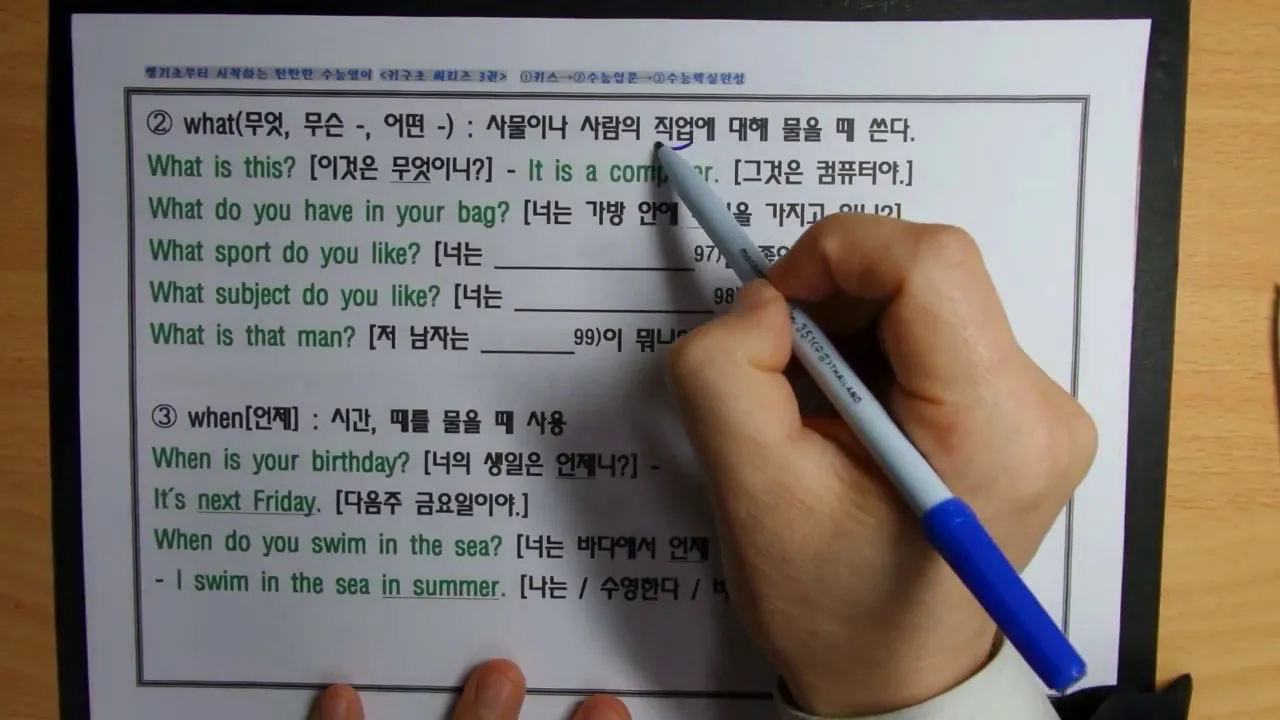 쌩기초부터 시작하는 탄탄한 수능영어 <키구초 씨리즈 3권> ①키스→②수능입문→③수능확실완성
② what(무엇, 무슨 -, 어떤 -) : 사물이나 사람의 직업에 대해 물을 때 쓴다.
What is this? [이것은 무엇이니?] - It is a comp er. [그것은 컴퓨터야.]
What do you have in your bag? [너는 가방 안에 을 가지고
What sport do you like? [너는 ____________ 97)
What subject do you like? [너는 ____________ 98)
What is that man? [저 남자는 ______ 99)이 뭐니
③ when[언제] : 시간, 때를 물을 때 사용
When is your birthday? [너의 생일은 언제니?] -
It´s next Friday. [다음주 금요일이야.]
When do you swim in the sea? [너는 바다에서 언제
- I swim in the sea in summer. [나는 / 수영한다 /
351(수성)THAILAND